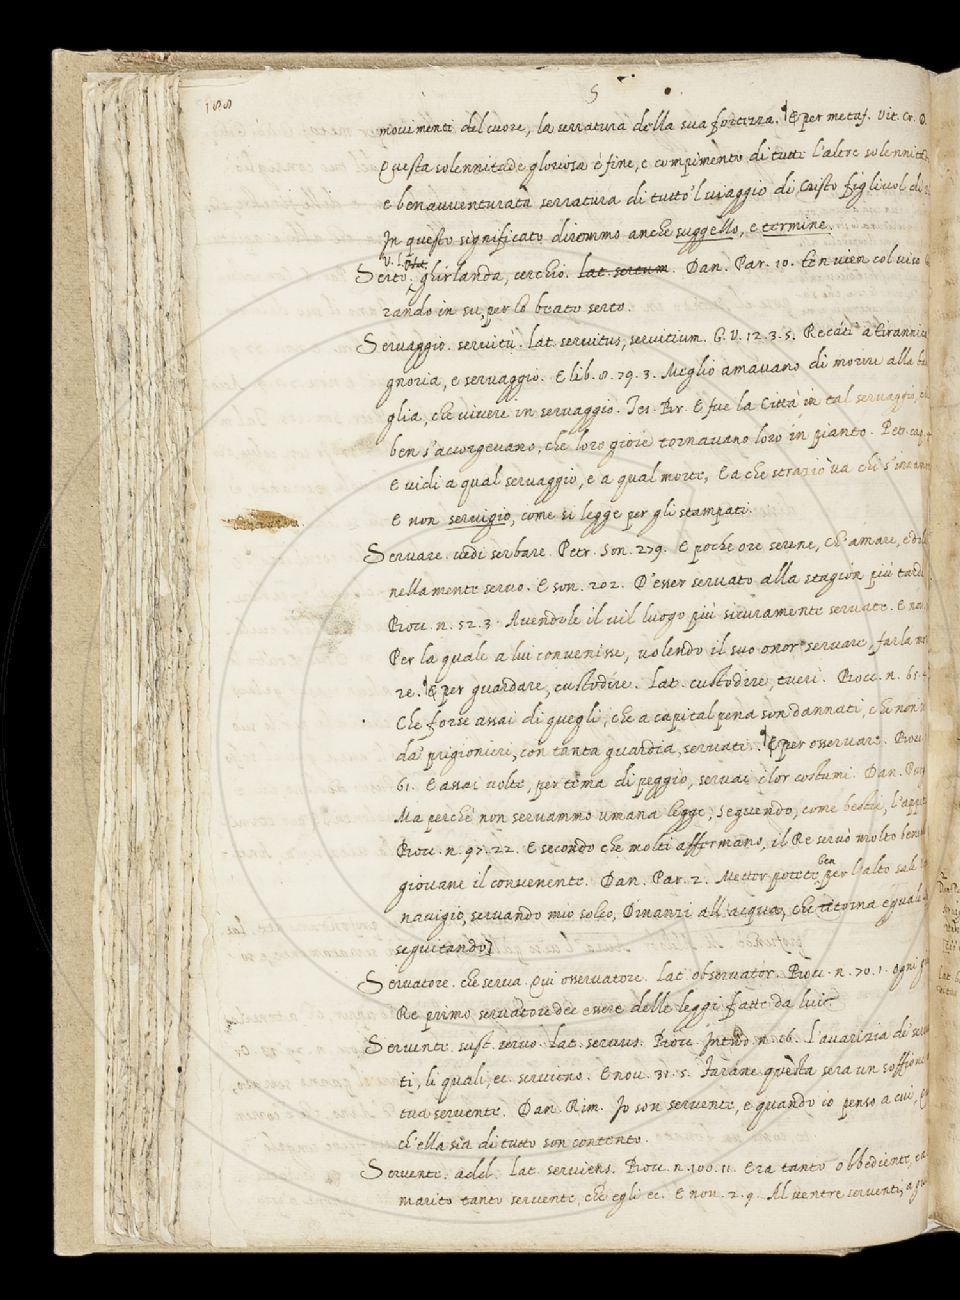 188
S
movimenti del cuore, la serratura della sua fortezza. ¶ E per metaf. Vit. Cr. D.
Questa solennitade gloriosa è fine, e compimento di tutte l'altre solennità
e benavventurata serratura di tutto 'l viaggio di Cristo figliuol di
In questo significato diremmo anche suggello, e termine.
V. L.
Serto, ghirlanda, cerchio. lat. sertum. Dan. Par. 10. Ten vien col viso
rando in su, per lo beato serto.
Servaggio. servitù. lat. servitus, servitium. G. V. 12. 3. 5. Recati a tirannica
gnoria, e servaggio. E lib. 8. 79. 3. Meglio amavano di morire alla
glia, che vivere in servaggio. Tes. Br. E fue la Città in tal servaggio,
ben s'accorgevano, che loro gioie tornavano loro in pianto. Petr. cap. 4
E vidi a qual servaggio, e a qual morte, E a che strazio va chi s'innam
E non servigio, come si legge per gli stampati.
Servare. vedi serbare. Petr. Son. 279. E poche ore serene, ch'amare, e dol
nella mente servo. E son. 202. D'esser servato alla stagion più tarda
Bocc. n. 52. 3. Avendole il vil luogo più sicuramente servate. E nov.
Per la quale a lui convenisse, volendo il suo onor servare, farla mo
re. ¶ E per guardare, custodire. Lat. custodire, tueri. Bocc. n. 65.
Che forse assai di quegli, che a capital pena son dannati, che non
da' prigionieri, con tanta guardia, servati. ¶ E per osservare. Bocc.
61. E assai volte, per tema di peggio, servai i lor costumi. Dan. Pur
Ma perchè non servammo umana legge, Seguendo, come bestie, l'appe
Bocc. n. 97. 22. E secondo che molti affermano, il Re servò molto bene
giovane il convenente. Dan. Par. 2. Metter potete ben per l'alto sale
navigio, servando mio solco, Dinanzi all'acqua, che ritorna equale
seguitando
Servatore. che serva. Qui osservatore. lat. observator. Bocc. n. 70. 1. Ogni
Re primo servatore dee essere delle leggi fatte da lui
Servente. sust. servo. lat. servus. Bocc. Introd. n. 16. l'avarizia di ser
ti, li quali, ec. servieno. E nov. 31. 5. Farane questa sera un soffione
tua servente. Dan. Rim. Io son servente, e quando io penso a cui,
ch'ella sia di tutto son contento.
Servente. add. lat. serviens. Bocc. n. 100. 11. Era tanto obbediente,
marito tanto servente, che egli ec. E nov. 2. 9. Al ventre serventi, a gui